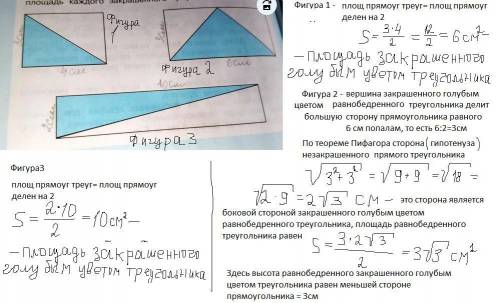 площадь каждого закрашенного
Фигура
1
4см
Фигура 2
6см
10см
Фигура 3
Фигура 1 - площ прямоуг треуг= площ прямоуг
делен на 2
S = 3·4/2 = 12/2 = 6 см²
– площадь закрашенного
голубым цветом треугольника
Фигура 2 - вершина закрашенного голубым
цветом равнобедренного треугольника делит
большую сторону прямоугольника равного
6 см попалам, то есть 6:2=3см
По теореме Пифагора сторона( гипотенуза)
незакрашенного прямого треугольника
√3²+3² = √9+9 = √18 =
√2·9 = 2√3 см – это сторона является
боковой стороной закрашенного голубым цветом
равнобедренного треугольника, площадь равнобедренного
треугольника равен
S = 3·2√3/2 = 3√3 см²
Здесь высота равнобедренного закрашенного голубым
цветом треугольника равен меньшей стороне
прямоугольника = 3см
Фигура3
площ прямоуг треуг= площ прямоуг
делен на 2
S = 2·10/2 = 10см² –
– площадь закрашенного
голубым цветом треугольника